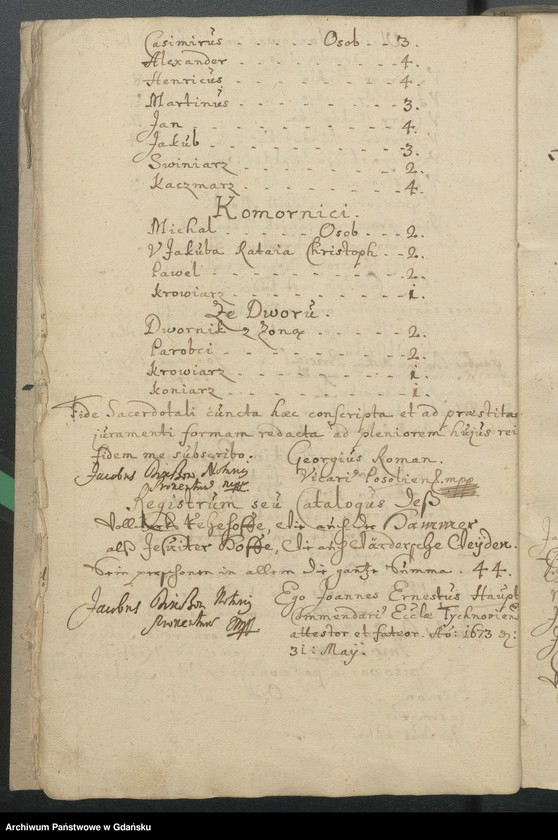 Casimirus - - - - Osob - - 3.
Alexander - - - - - - - - 4.
Henricus - - - - - - - - 4.
Martinus - - - - - - - - 3.
Jan - - - - - - - - 4.
Jakub - - - - - - - - 3.
Swiniarz - - - - - - - - 2.
Kaczmarz - - - - - - - - 4.
Komornici.
Michal - - - - Osob - - 2.
V Jakuba Rataia Christoph - - 2.
Pawel - - - - - - - - 2.
Krowiarz - - - - - - - - 1.
Ze Dworu.
Dwornik z Zoną - - - - - 2.
Parobci - - - - - - - - 2.
Krowiarz - - - - - - - - 1.
Koniarz - - - - - - - - 1.
Fide Sacerdotali cuncta hæc conscripta et ad præstita
juramenti formam redacta ad pleniorem hujus rei
fidem me subscribo. Georgius Roman.
Jacobus Vicari
mpp
Registrum seu Catalogus Deß
die auf der Hammer
alß Jesuiter Hoffe, die
Sein persohnen in allem die gantze Summa. 44.
Jacobus Ego Joannes Ernestus Haupt
Commendari Eccle
attestor et fateor. Ao: 1673 D:
31: May.
Archiwum Państwowe w Gdańsku
Archiwum Państwowe w Gdańsku